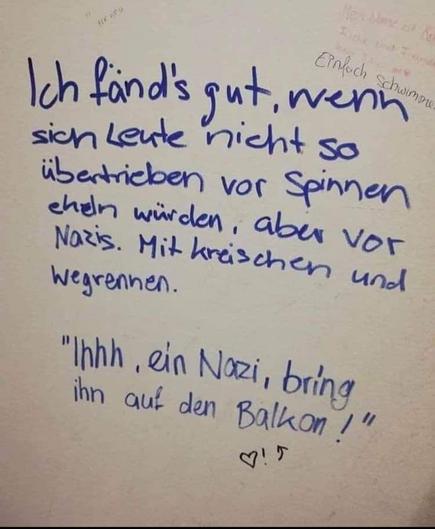 Einfach schwimmen
Ich fänd's gut, wenn
sich Leute nicht so
übertrieben vor Spinnen
ekeln würden, aber vor
Nazis. Mit kreischen und
wegrennen.
"Ihhh, ein Nazi, bring
ihn auf den Balkon!"
♡!↑